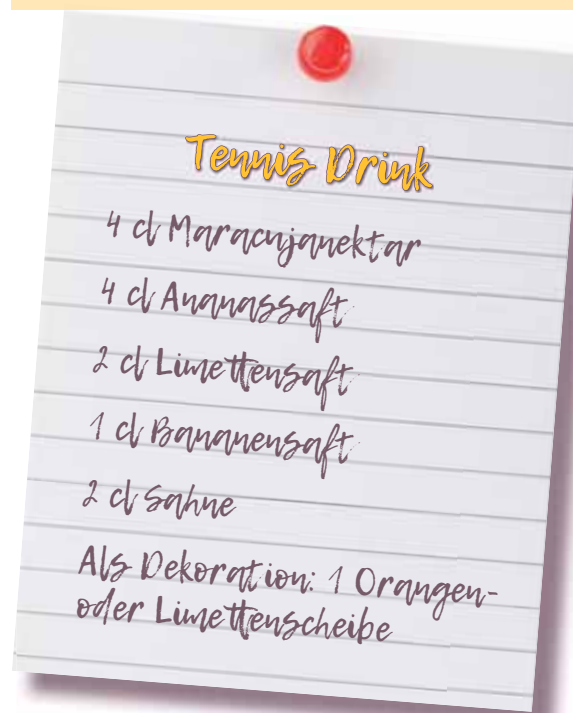 Tennis Drink
4 cl Maracujanektar
4 cl Ananassaft
2 cl Limettensaft
1 cl Bananensaft
2 cl Sahne
Als Dekoration: 1 Orangen-
oder Limettenscheibe